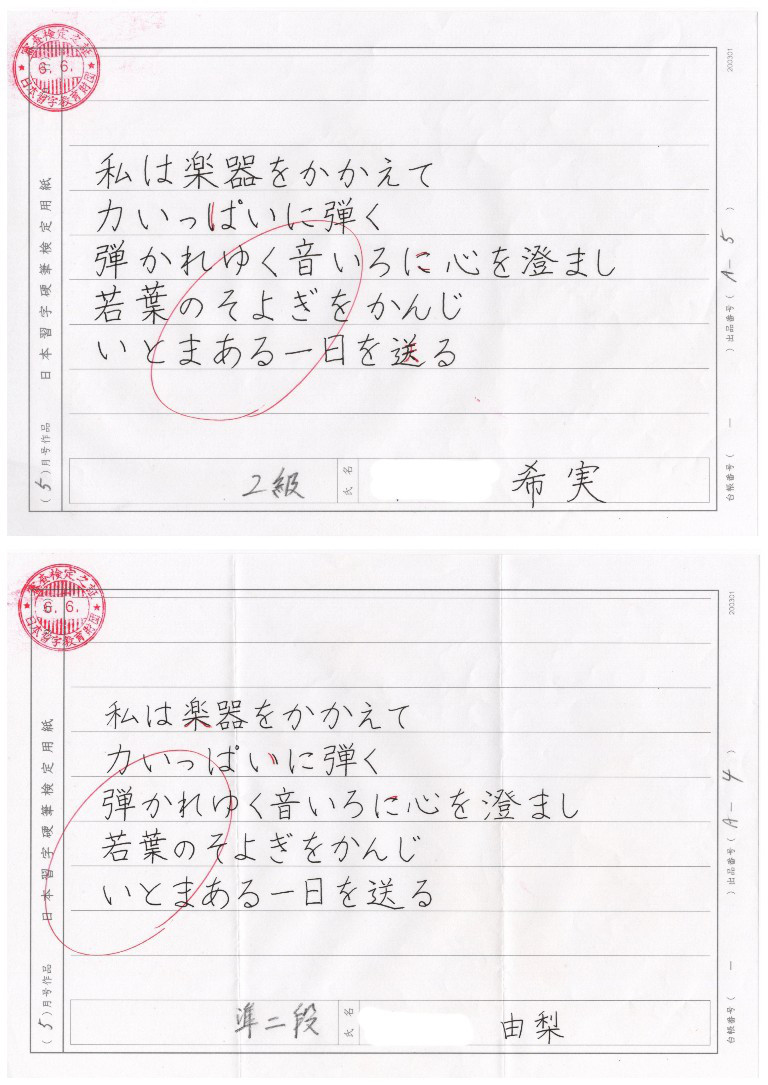 審査検定之証
6.6.
日本習字教育財団
200301
日本習字硬筆検定用紙
(5)月号作品
私は楽器をかかえて
力いっぱいに弾く
弾かれゆく音いろに心を澄まし
若葉のそよぎをかんじ
いとまある一日を送る
2級
氏名
希実
台帳番号( 一 )出品番号( A-5 )
審査検定之証
6.6.
日本習字教育財団
200301
日本習字硬筆検定用紙
(5)月号作品
私は楽器をかかえて
力いっぱいに弾く
弾かれゆく音いろに心を澄まし
若葉のそよぎをかんじ
いとまある一日を送る
準二段
氏名
由梨
台帳番号( 一 )出品番号( A-4 )